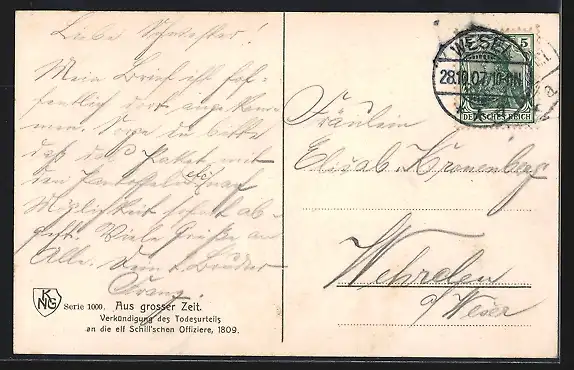 Liebe Schwester!
Mein Brief ist hof-
fentlich dort angekom-
men. Sorge du bitte
daß das Paket mit
den Pantoffeln etc. nach
Möglichkeit sofort ab-
geht. Viele Grüße an
Alle. Dein l. Bruder
Franz.
KNG
Serie 1000. Aus grosser Zeit.
Verkündigung des Todesurteils
an die elf Schill'schen Offiziere, 1809.
WESEL
28.10.07.
5
DEUTSCHES REICH
Fräulein
Elisab. Kronenberg
Wehrden
a/Weser